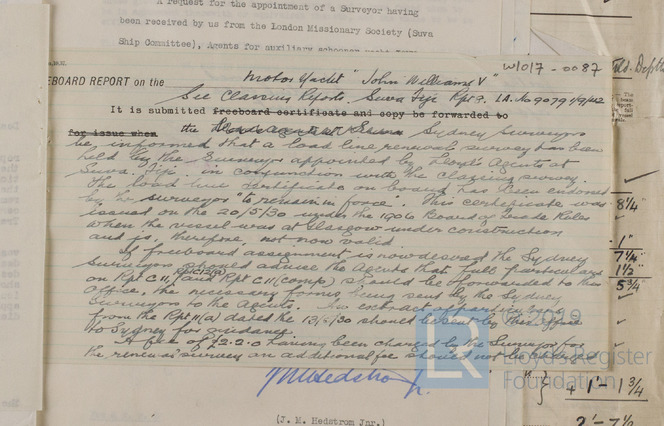 A request for the appointment of a Surveyor having
been received by us from the London Missionary Society (Suva
Ship Committee), Agents for auxiliary schooner yacht
W1017-0087
EBOARD REPORT on the Motor Yacht "John Williams V"
See Classing Reports. Suva Fiji Rpt 9. LA. No 9079
It is submitted freeboard certificate and copy be forwarded to
for issue when the Sydney Surveyors
be informed that a load line renewal survey has been
held by the Surveyor appointed by Lloyd's Agents at
Suva. Fiji. in conjunction with the classing survey.
The load line certificate on board has been endorsed
by the surveyor "to remain in force". This certificate was
issued on the 20/5/30 under the 1906 Board of Trade Rules
when the vessel was at Glasgow under construction
and is, therefore, not now valid.
If freeboard assignment is now desired the Sydney
Surveyors should advise the Agents that full particulars
on Rpt C11, and Rpt C11(comp) should be forwarded to this
Office, the necessary forms being sent by the Sydney
Surveyors to the Agents. An extract of particulars
from the Rpt 11(a) dated the 13/5/30 should be sent by this Office
to Sydney for guidance.
A fee of £2.2.0 having been charged by the Surveyor for
the renewal survey an additional fee should not be
(J. M. Hedstrom Jnr.)
8 1/4"
1"
7 1/4
1 1/2"
5 3/4
+ 1'- 1 3/4
2'- 7 1/2
2019
LR
Lloyd's Register
Foundation